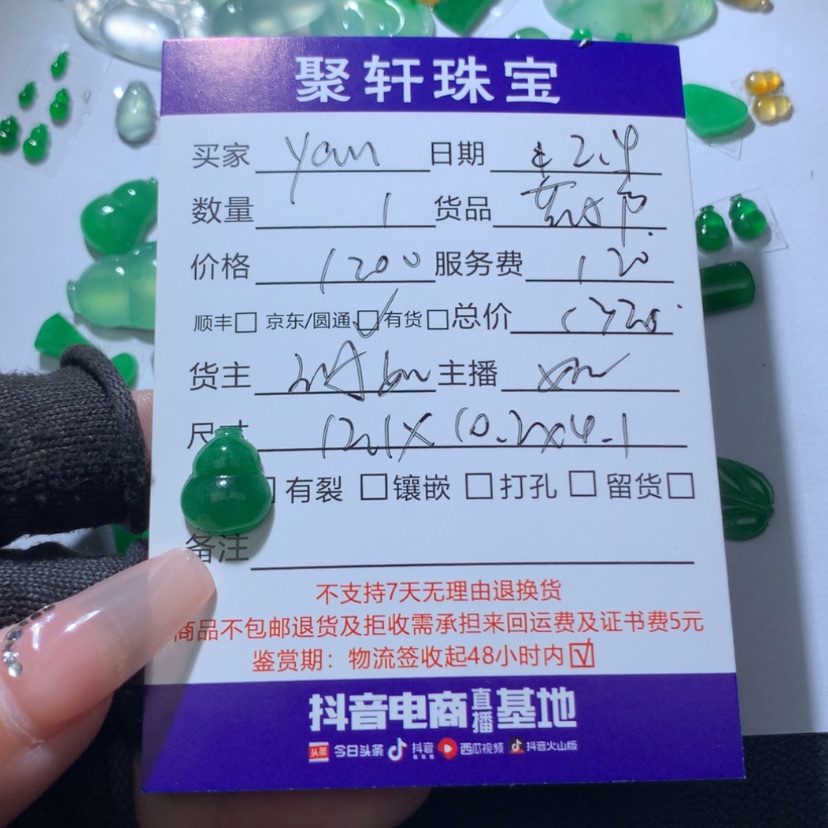 聚轩珠宝
买家 yan 日期 2.4
数量 1 货品
价格 1200 服务费 120
顺丰□ 京东/圆通☑有货□总价
货主 主播
尺寸 12.1X10.2X4.1
有裂 □镶嵌 □打孔 □ 留货□
备注
不支持7天无理由退换货
商品不包邮退货及拒收需承担来回运费及证书费5元
鉴赏期：物流签收起48小时内☑
抖音电商直播基地
头条 今日头条 抖音 西瓜视频 抖音火山版